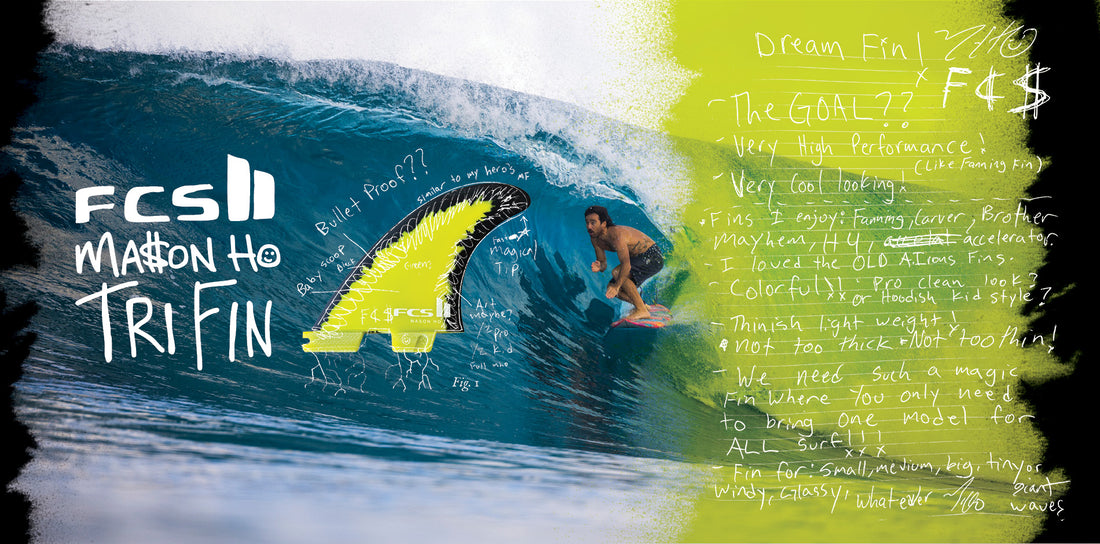 FCS II
MA$ON HO
TRI FIN
Bullet Proof??
similar to my hero's MF
Baby scoop
Black
Green
Fast
magical
Tip.
F¢$ FCS II
MASON HO
Art
maybe?
1/2 Pro
1/2 Kid
Full Who
Fig. 1
Dream Fin!
x F¢$
- The GOAL??
- Very High Performance!
(Like Fanning Fin)
- Very Cool looking!
• Fins I enjoy: Fanning, Carver, Brother
Mayhem, H4, accelerator.
- I loved the OLD A.Irons Fins.
- Colorful!! Pro clean look?
xx or Hoodish Kid style?
- Thinish light weight!
* not too thick * Not too thin!
- We need such a magic
Fin where You only need
to bring one model for
ALL surf!!!
xxx
- Fin for: small, medium, big, tiny or
windy, Glassy, whatever giant
waves?